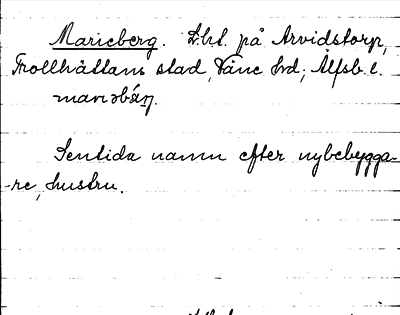 Marieberg. Lht. på Arvidstorp,
Trollhättans stad, Väne hd; Älfsb. l.
marıəbá̤rj.
Sentida namn efter nybebygga-
-re, hustru.